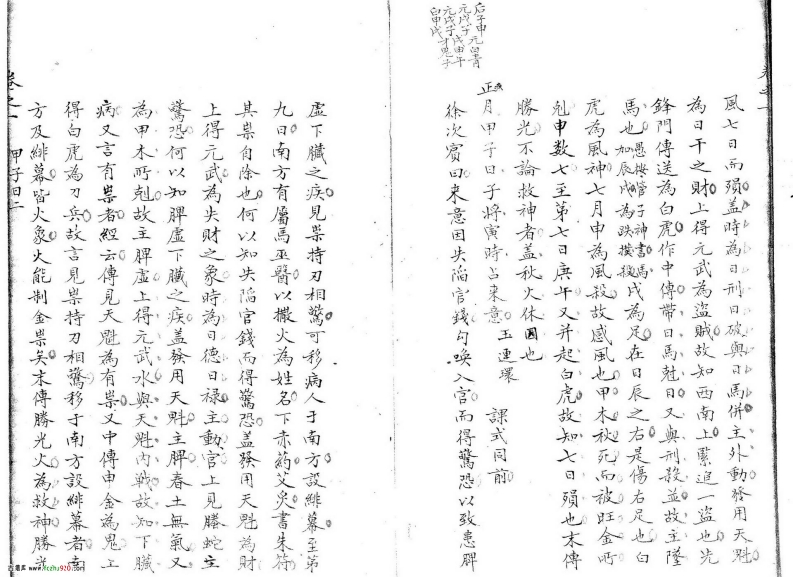 后子申 元白青
元戌子 戌申午
元戌子 才鬼子
白申戌
卷之一
風七日而殞蓋時為日刑日破與日馬併主外動發用天魁
為日干之財上得元武為盜賊故知西南上縈追一盜也先
鋒門傳送為白虎作中傳帶日馬尅日又與刑殺並故主墜
馬也愚按管子神書馬加辰戌為跌撲殺戌為足在日辰之右是傷右足也白
虎為風神七月申為風殺故感風也甲木秋死而被旺金所
尅申数七至第七日庚午又并起白虎故知七日殞也末傳
勝光不論救神者蓋秋火休囚也
正月甲子日子將寅時占來意 王連環 課式同前
徐次賓曰來意因失陷官錢勾喚入官而得驚恐以致患脾
虛下臟之疾見祟持刃相驚可移病人于南方設緋幕至第
九日南方有屬馬巫醫以撒火為姓名下赤葯艾灸書朱符
其祟自除也何以知失陷官錢而得驚恐蓋發用天魁為財
上得元武為失財之象時為日德日禄主動官上見螣蛇主
驚恐何以知脾虛下臟之疾蓋發用天魁主脾春土無氣又
為甲木所尅故主脾虛上得元武水與天魁內戰故知下臟
病又言有祟者經云傳見天魁為有祟又中傳申金為鬼上
得白虎為刀兵故言見祟持刃相驚移于南方設緋幕者南
方及緋幕皆火象火能制金祟矣末傳勝光火為救神勝光
卷之一 甲子日二